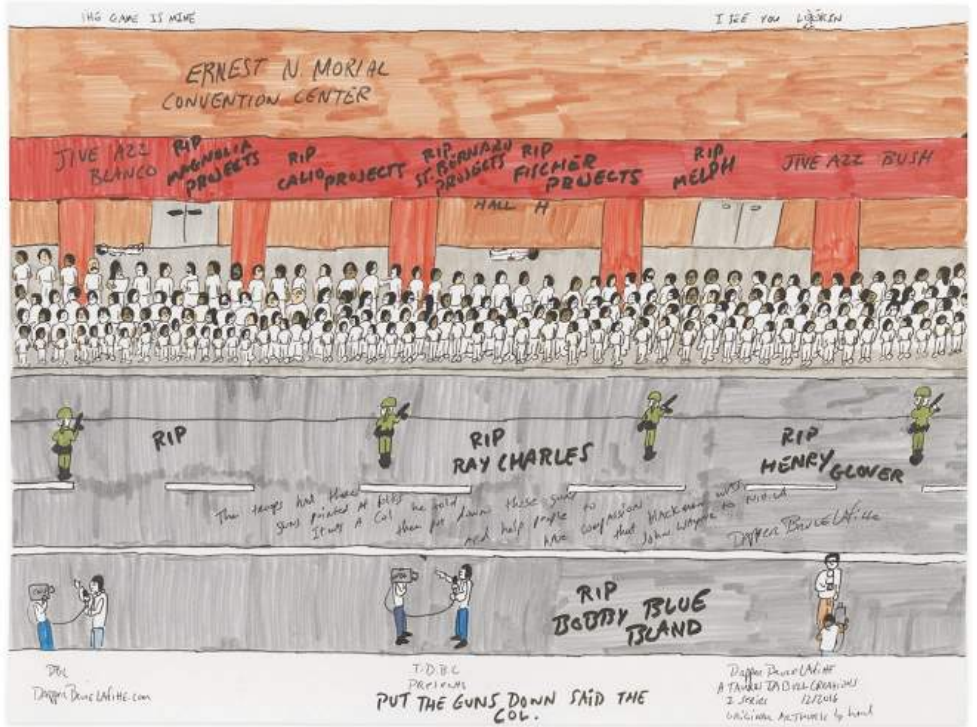 THE GAME IS MINE
I SEE YOU LOOKIN
ERNEST N. MORIAL
CONVENTION CENTER
JIVE AZZ
BLANCO
RIP
MAGNOLIA
PROJECTS
RIP
CALIO PROJECTS
RIP
ST. BERNARD
PROJECTS
RIP
FISCHER
PROJECTS
RIP
MELPH
JIVE AZZ BUSH
HALL H
RIP
RIP
RAY CHARLES
RIP
HENRY GLOVER
The troops had there
guns pointed at folks
It was A Col he told
them put down these guns
and help people to
have compassion
that black man was
John Wayne to
Dapper Bruce Lafitte
RIP
BOBBY BLUE
BLAND
DBL
Dapper Bruce Lafitte.com
T.D.B.C
Presents
PUT THE GUNS DOWN SAID THE
COL.
Dapper Bruce Lafitte
A
I SERIES 12/2016
ORIGINAL ARTWORK by hand